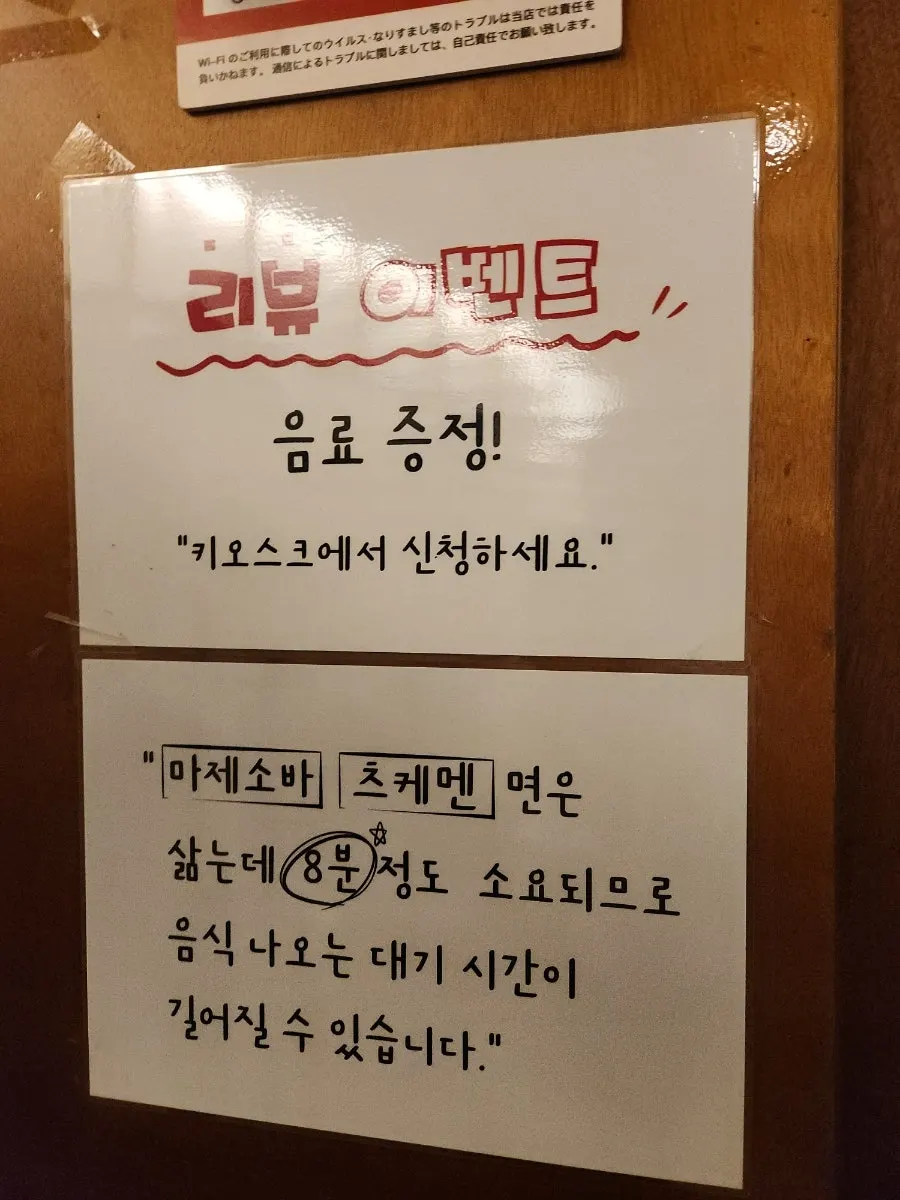 Wi-Fi のご利用に際してのウイルス・なりすまし等のトラブルは当店では責任を
負いかねます。通信によるトラブルに関しましては、自己責任でお願い致します。
리뷰 이벤트
음료 증정!
"키오스크에서 신청하세요."
"마제소바 츠케멘 면은
삶는데 8분 정도 소요되므로
음식 나오는 대기 시간이
길어질 수 있습니다."